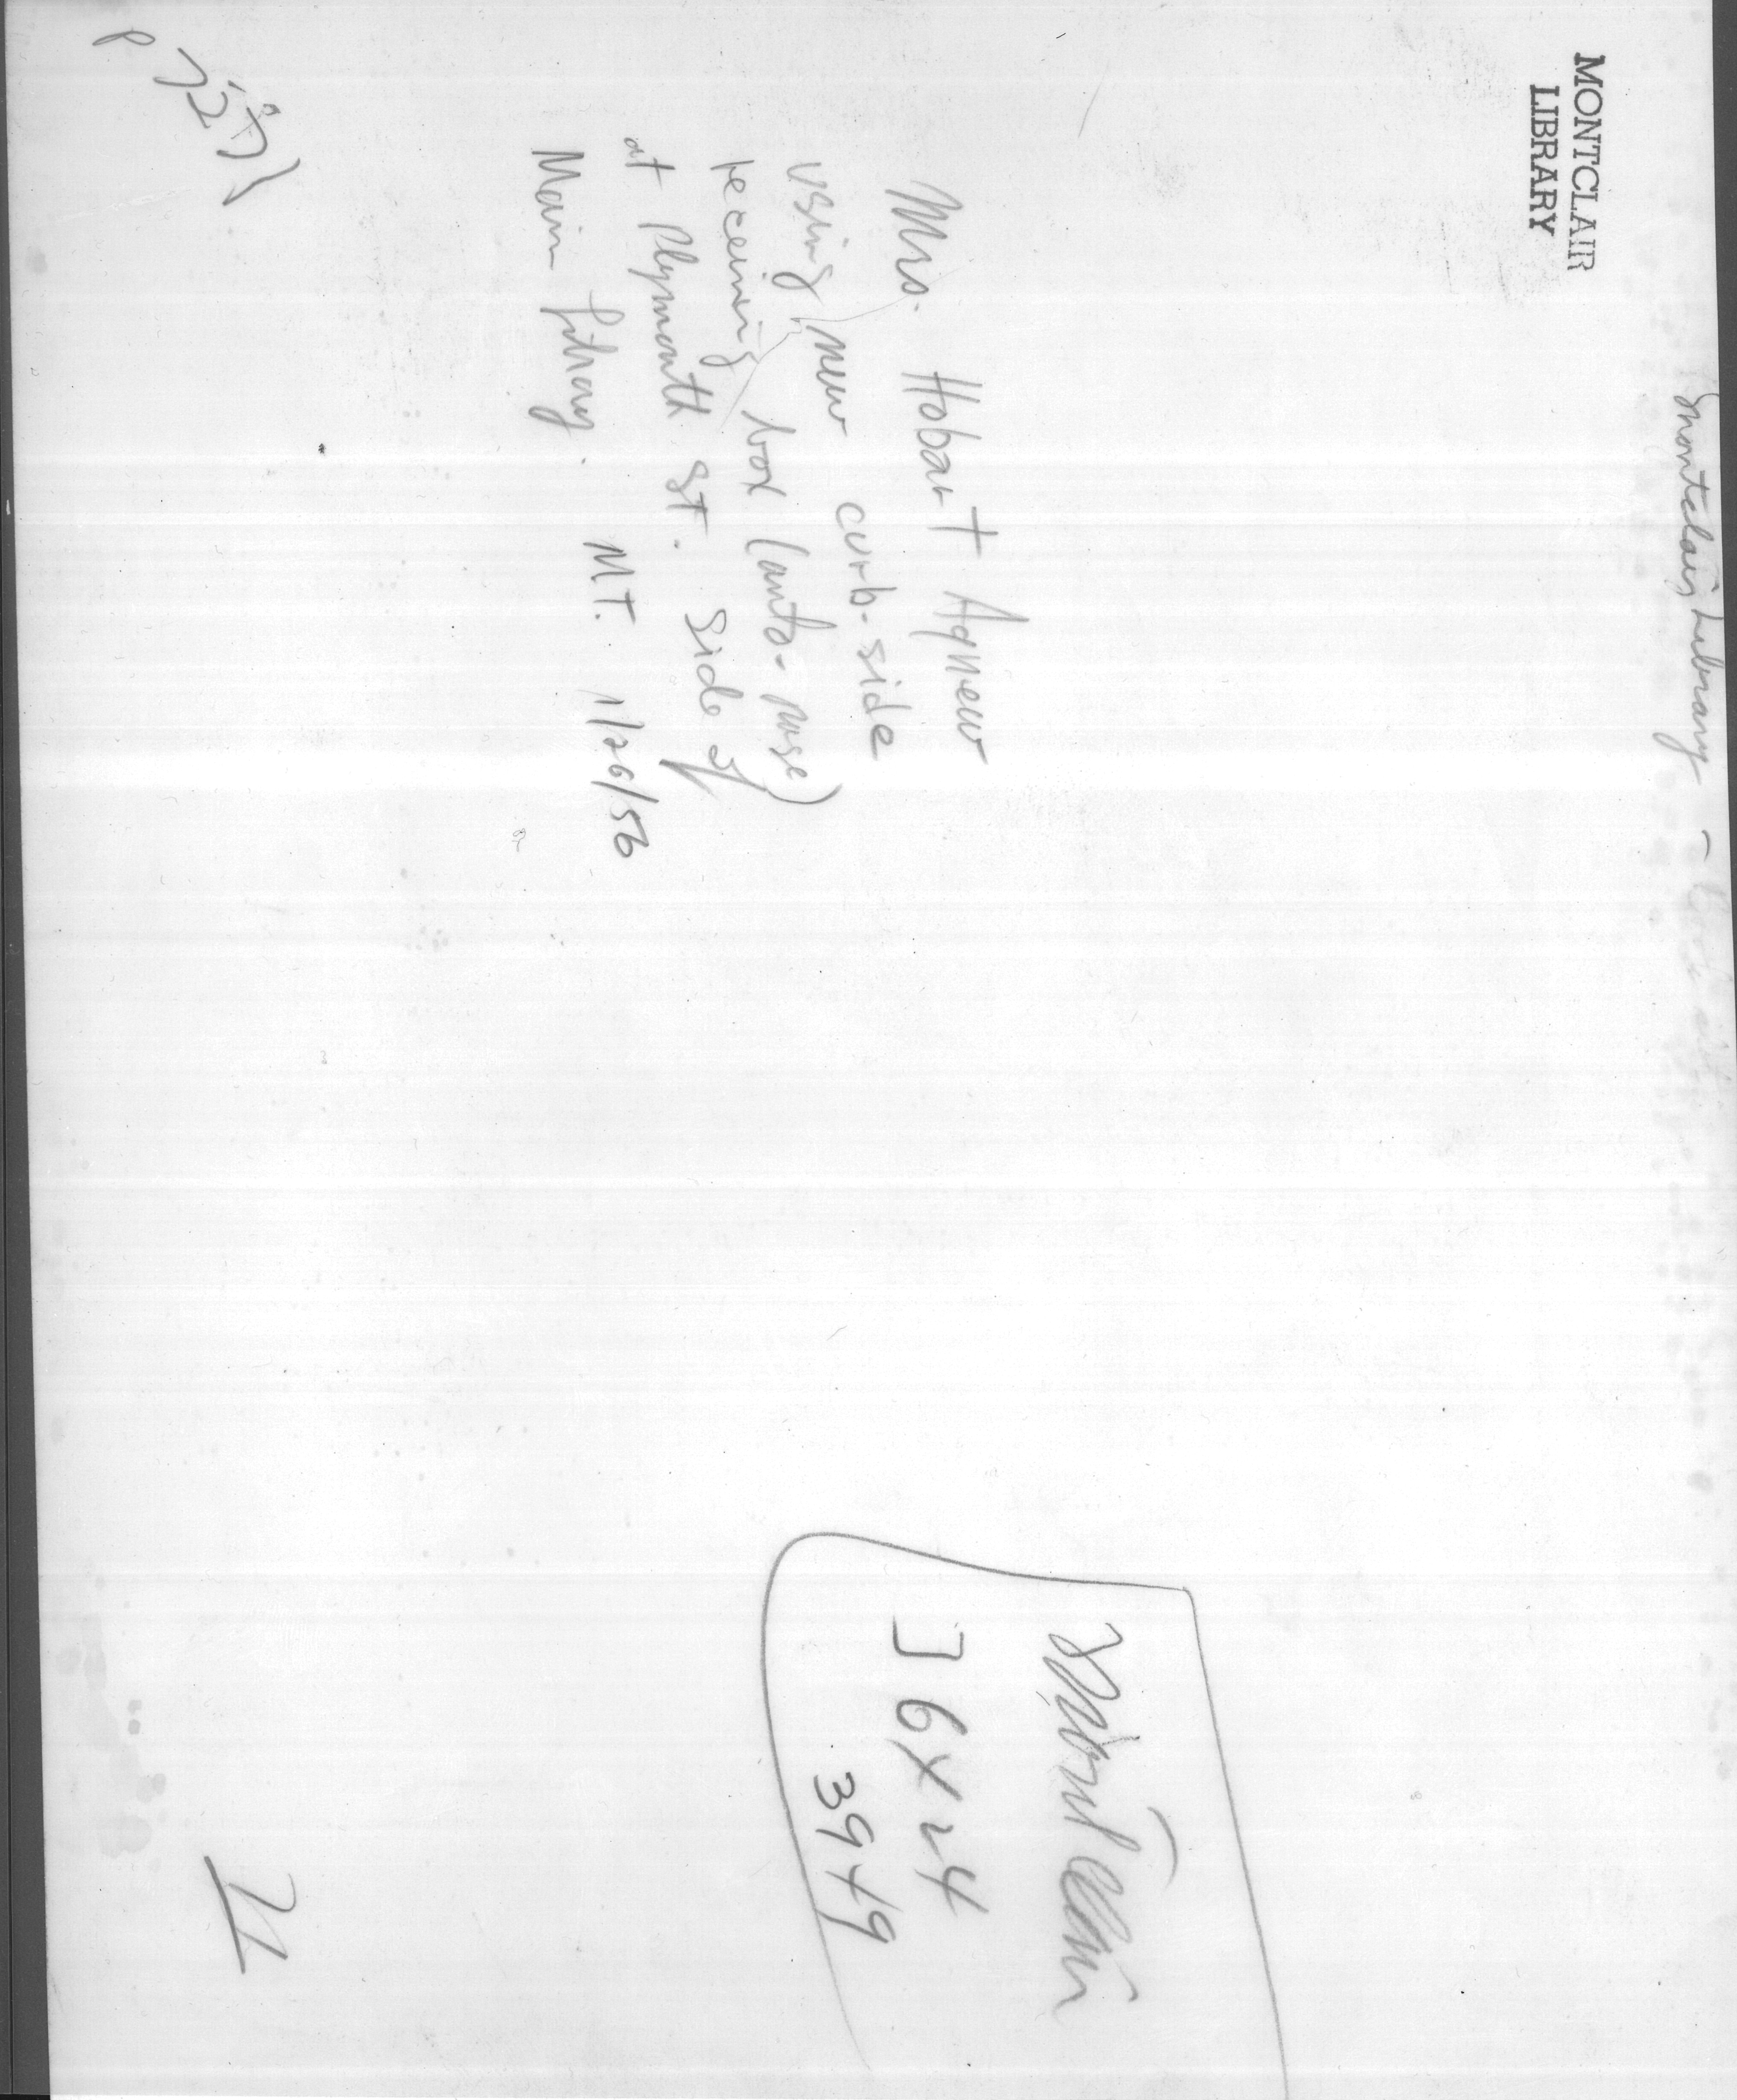 Montclair Library -
MONTCLAIR
LIBRARY
Mrs. Hobart Agnew
using new curb-side
receiving box (auto-nose)
at Plymouth St. side of
Main Library. MT. 1/26/56
Montclair
J 6 X 24
39 49